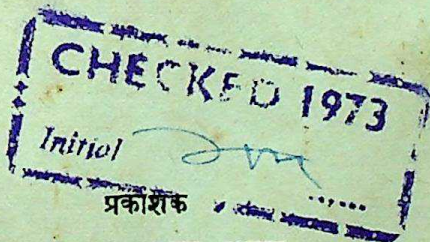 CHECKED 1973
Initial
प्रकाशक